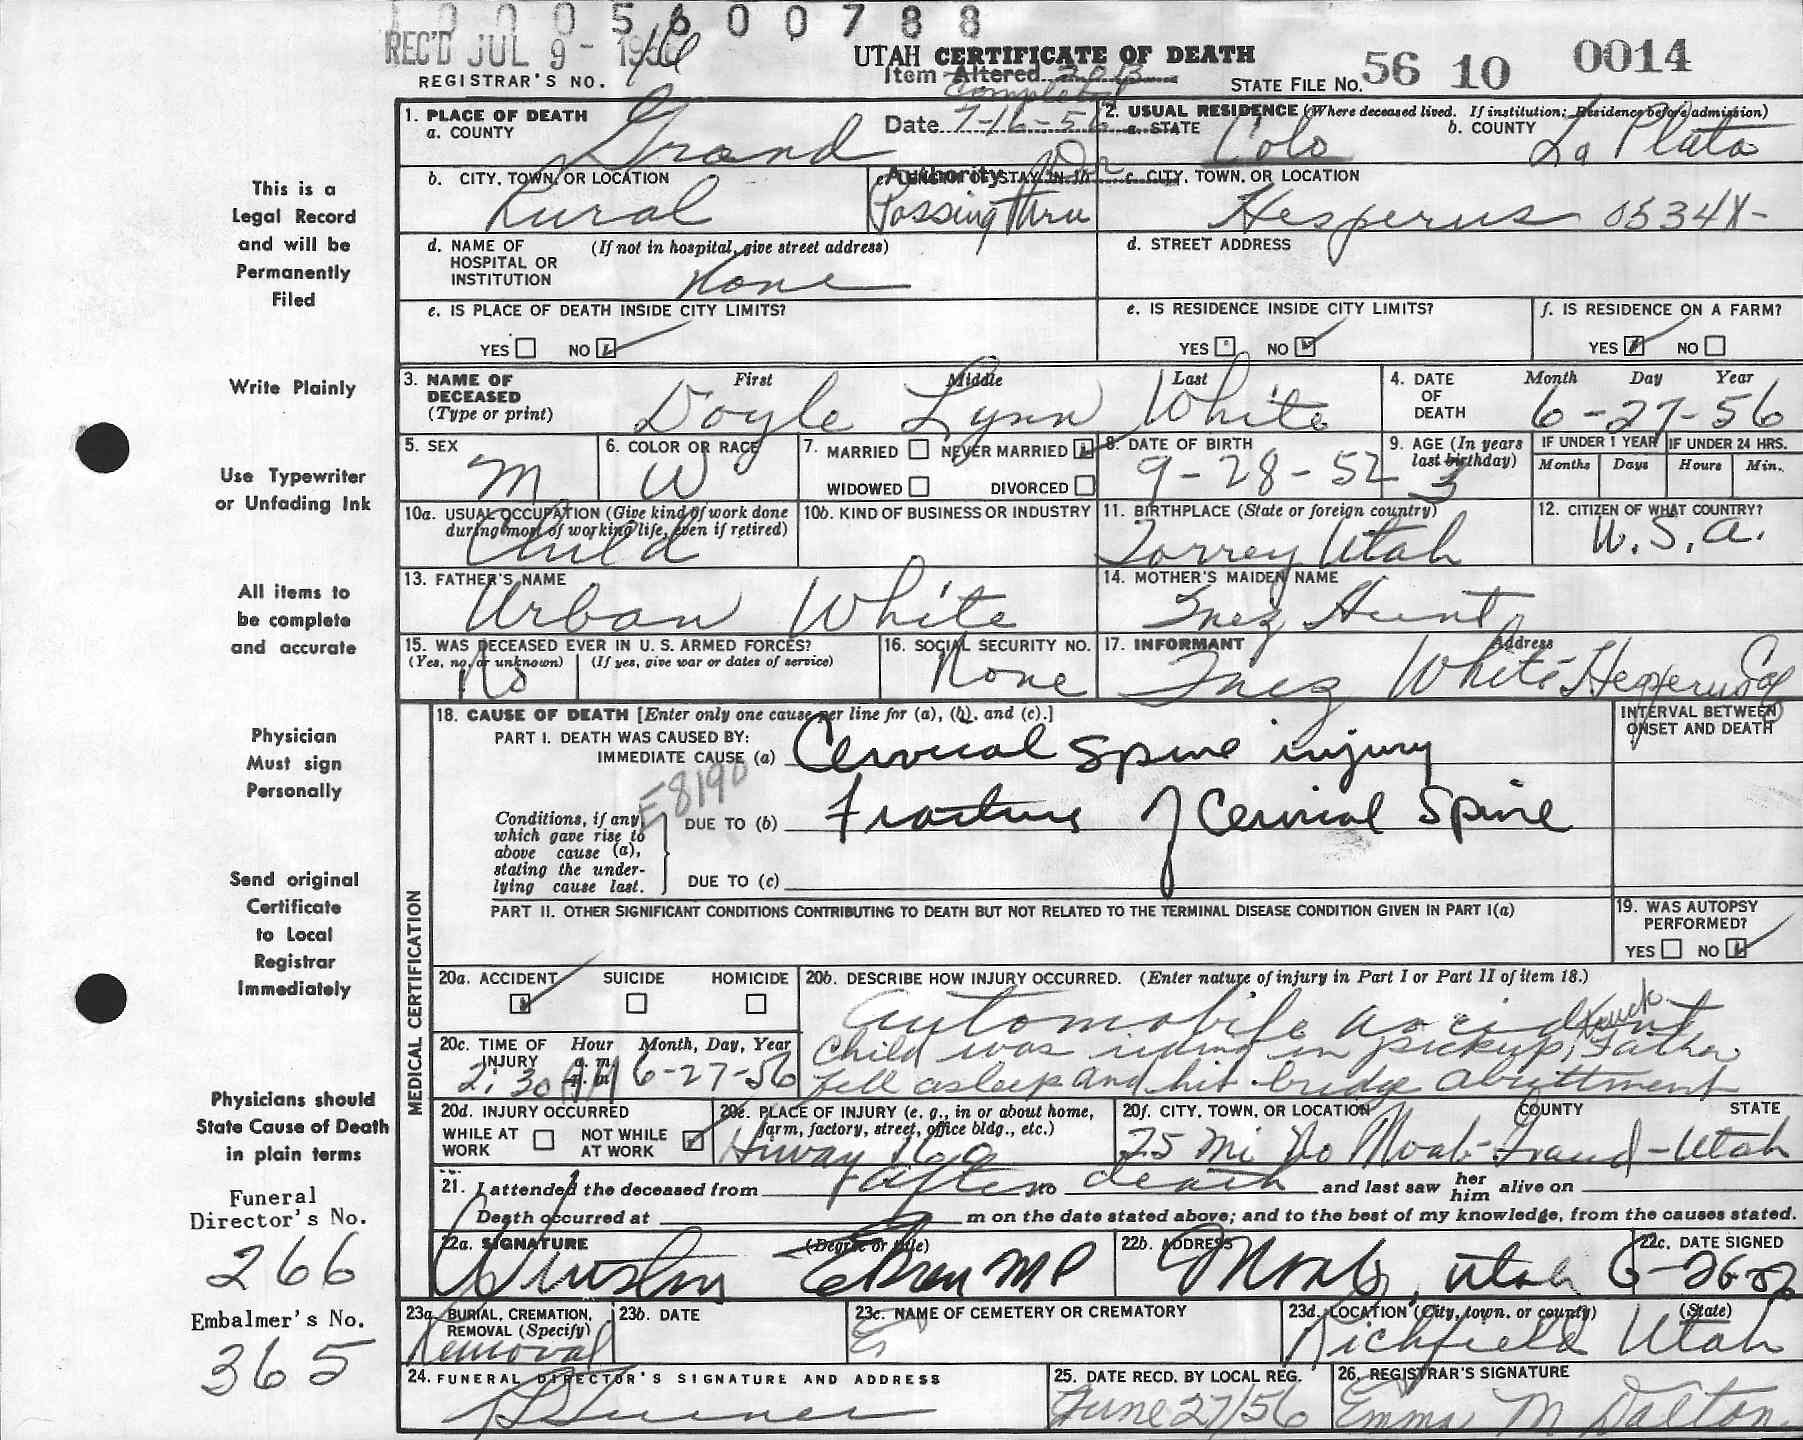 1 0 0 0 5 6 0 0 7 8 8
REC'D JUL 9 - 1956
UTAH CERTIFICATE OF DEATH
REGISTRAR'S NO. 16
Item Altered 20B
Completed
STATE FILE NO. 56 10 0014
Date 7-16-56
Authority
This is a
Legal Record
and will be
Permanently
Filed
Write Plainly
Use Typewriter
or Unfading Ink
All items to
be complete
and accurate
Physician
Must sign
Personally
Send original
Certificate
to Local
Registrar
Immediately
Physicians should
State Cause of Death
in plain terms
Funeral
Director's No.
266
Embalmer's No.
365
1. PLACE OF DEATH
a. COUNTY Grand
2. USUAL RESIDENCE (Where deceased lived. If institution; Residence before admission)
a. STATE Colo
b. COUNTY La Plata
b. CITY, TOWN, OR LOCATION Rural
c. LENGTH OF STAY IN 1b Passing thru
c. CITY, TOWN, OR LOCATION
Hesperus 0534X-
d. NAME OF HOSPITAL OR INSTITUTION (If not in hospital, give street address)
None
d. STREET ADDRESS
e. IS PLACE OF DEATH INSIDE CITY LIMITS?
YES NO
e. IS RESIDENCE INSIDE CITY LIMITS?
YES NO
f. IS RESIDENCE ON A FARM?
YES NO
3. NAME OF DECEASED (Type or print) First Middle Last
Doyle Lynn White
4. DATE OF DEATH Month Day Year
6-27-56
5. SEX M
6. COLOR OR RACE W
7. MARRIED NEVER MARRIED
WIDOWED DIVORCED
8. DATE OF BIRTH
9-28-52
9. AGE (In years last birthday)
3
IF UNDER 1 YEAR IF UNDER 24 HRS.
Months Days Hours Min.
10a. USUAL OCCUPATION (Give kind of work done during most of working life, even if retired)
Child
10b. KIND OF BUSINESS OR INDUSTRY
11. BIRTHPLACE (State or foreign country)
Torrey Utah
12. CITIZEN OF WHAT COUNTRY?
U.S.A.
13. FATHER'S NAME
Urban White
14. MOTHER'S MAIDEN NAME
Inez Hunt
15. WAS DECEASED EVER IN U. S. ARMED FORCES?
(Yes, no, or unknown) (If yes, give war or dates of service)
No
16. SOCIAL SECURITY NO.
None
17. INFORMANT Address
Inez White - Hesperus Col
18. CAUSE OF DEATH [Enter only one cause per line for (a), (b), and (c).]
INTERVAL BETWEEN ONSET AND DEATH
PART I. DEATH WAS CAUSED BY:
IMMEDIATE CAUSE (a) Cervical Spine injury
E8190
Conditions, if any, which gave rise to above cause (a), stating the underlying cause last.
DUE TO (b) Fracture of Cervical Spine
DUE TO (c)
PART II. OTHER SIGNIFICANT CONDITIONS CONTRIBUTING TO DEATH BUT NOT RELATED TO THE TERMINAL DISEASE CONDITION GIVEN IN PART I(a)
19. WAS AUTOPSY PERFORMED?
YES NO
MEDICAL CERTIFICATION
20a. ACCIDENT SUICIDE HOMICIDE
20b. DESCRIBE HOW INJURY OCCURRED. (Enter nature of injury in Part I or Part II of item 18.)
Automobile accident
truck
Child was riding in pickup, Father
fell asleep and hit bridge abuttment
20c. TIME OF INJURY Hour a. m. p. m. Month, Day, Year
2:30 AM 6-27-56
20d. INJURY OCCURRED
WHILE AT WORK NOT WHILE AT WORK
20e. PLACE OF INJURY (e. g., in or about home, farm, factory, street, office bldg., etc.)
Hiway 160
20f. CITY, TOWN, OR LOCATION COUNTY STATE
25 Mi No Moab - Grand - Utah
21. I attended the deceased from after to death and last saw her him alive on
Death occurred at m on the date stated above; and to the best of my knowledge, from the causes stated.
22a. SIGNATURE (Degree or title)
MD
22b. ADDRESS
Moab, Utah
22c. DATE SIGNED
23a. BURIAL, CREMATION, REMOVAL (Specify)
Removal
23b. DATE
23c. NAME OF CEMETERY OR CREMATORY
23d. LOCATION (City, town, or county) (State)
Richfield Utah
24. FUNERAL DIRECTOR'S SIGNATURE AND ADDRESS
25. DATE RECD. BY LOCAL REG.
June 27/56
26. REGISTRAR'S SIGNATURE
Emma M Dalton